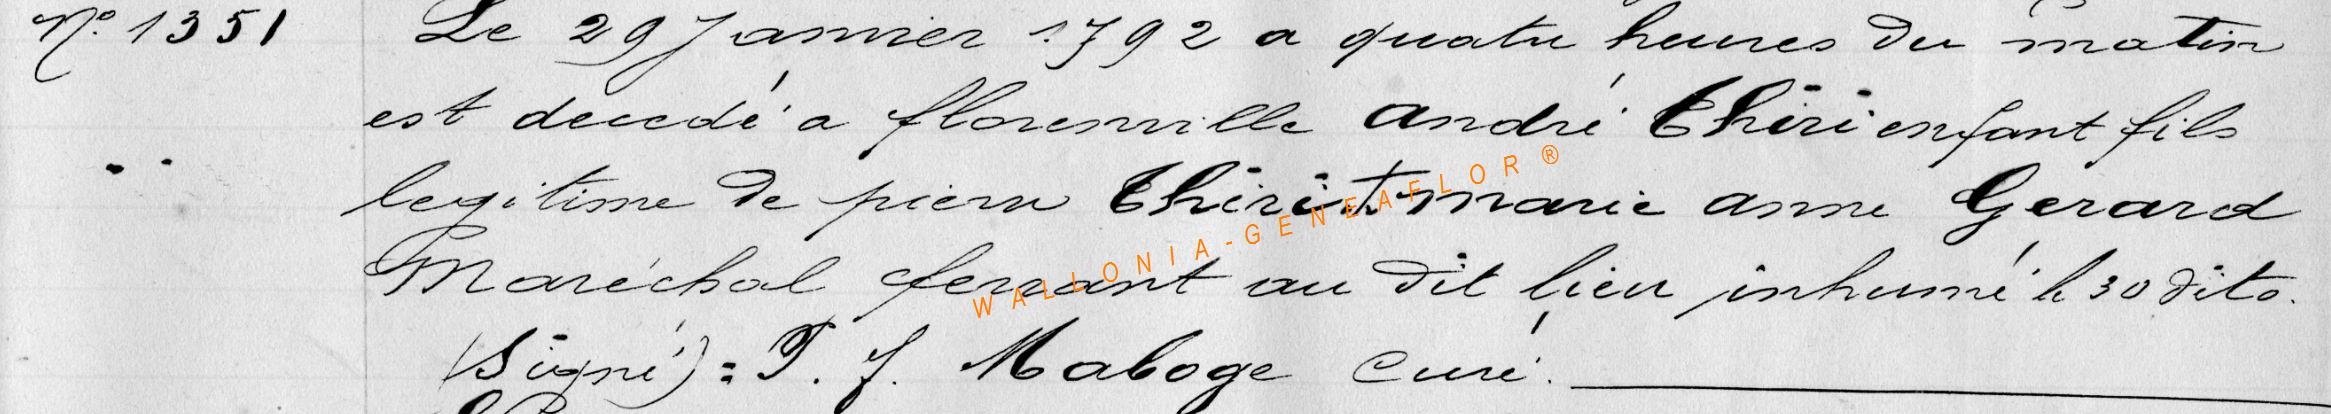 N.° 1351 Le 29 Janvier 1792 a quatre heures du matin
est decedé a florenville andré Thiri enfant fils
legitime de pierre Thiri et marie anne Gerard
Maréchal ferrant au dit lieu inhumé le 30 dito.
(Signé) = P. J. Maboge curé.
WALLONIA-GENEAFLOR ®